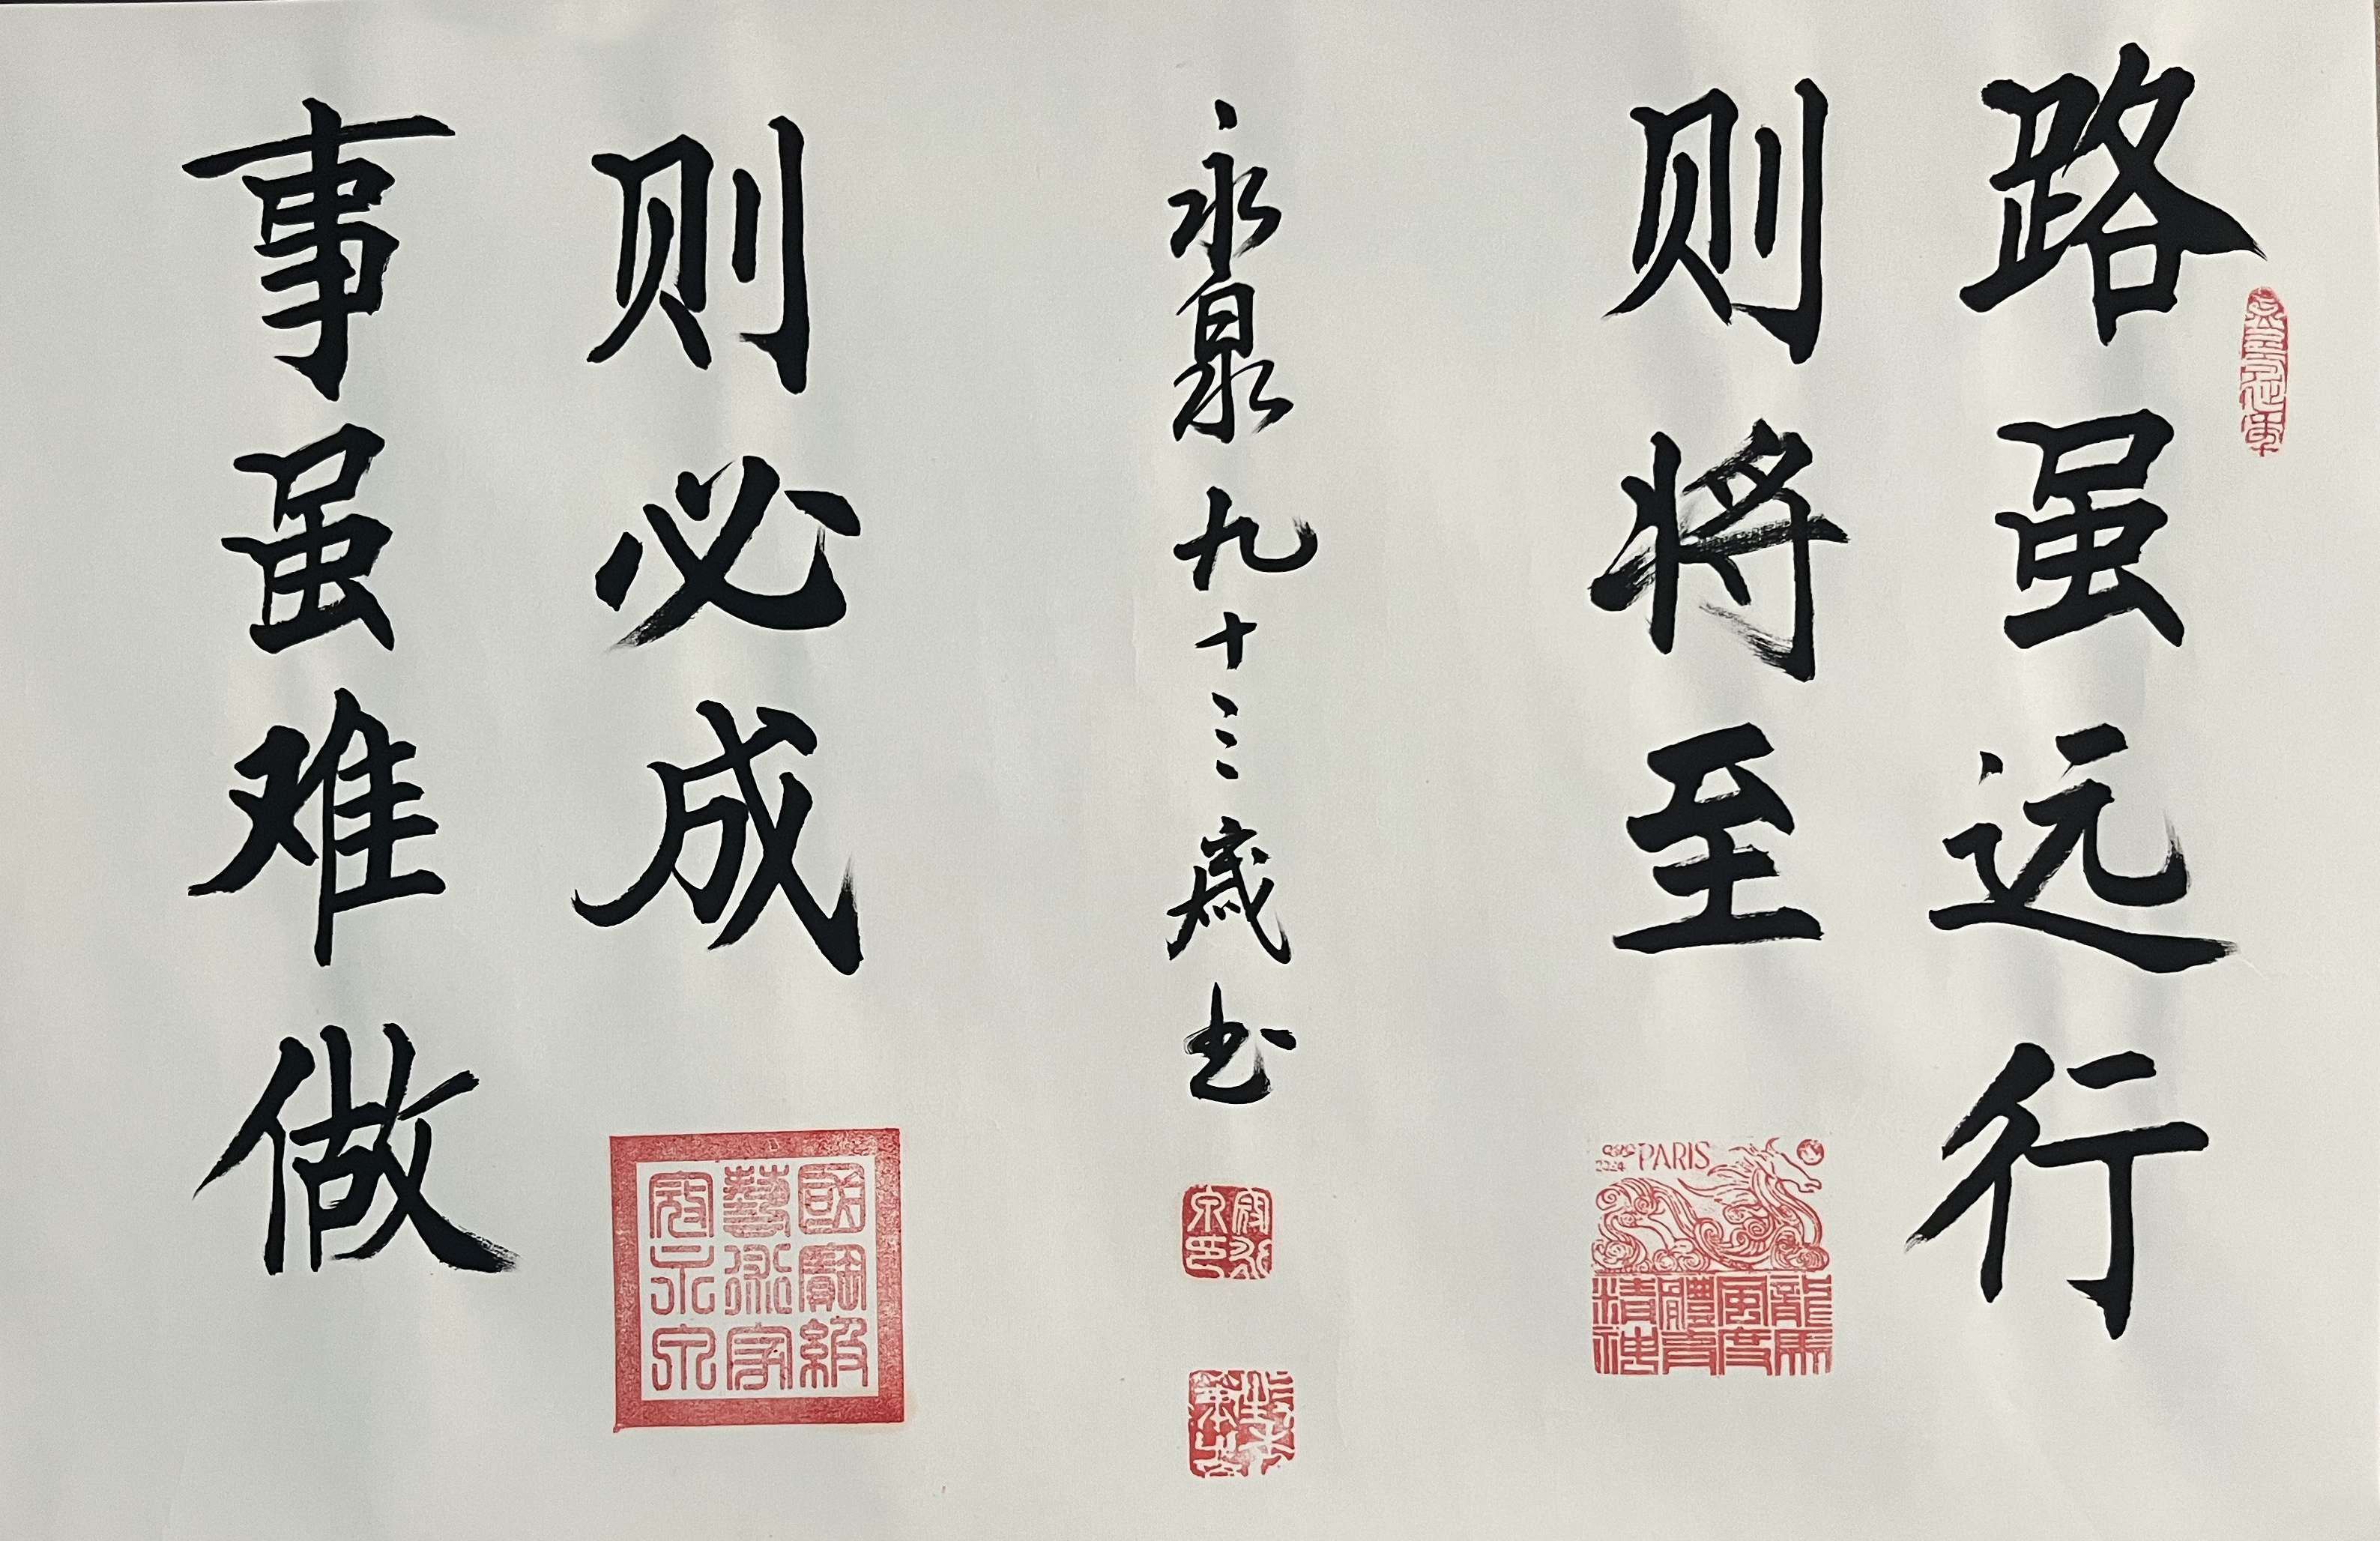 路虽远行
则将至
事虽难做
则必成
永泉九十三岁书
PARIS
2024
龍馬
風度
體育
精神
國寶級
藝術家
寇永泉